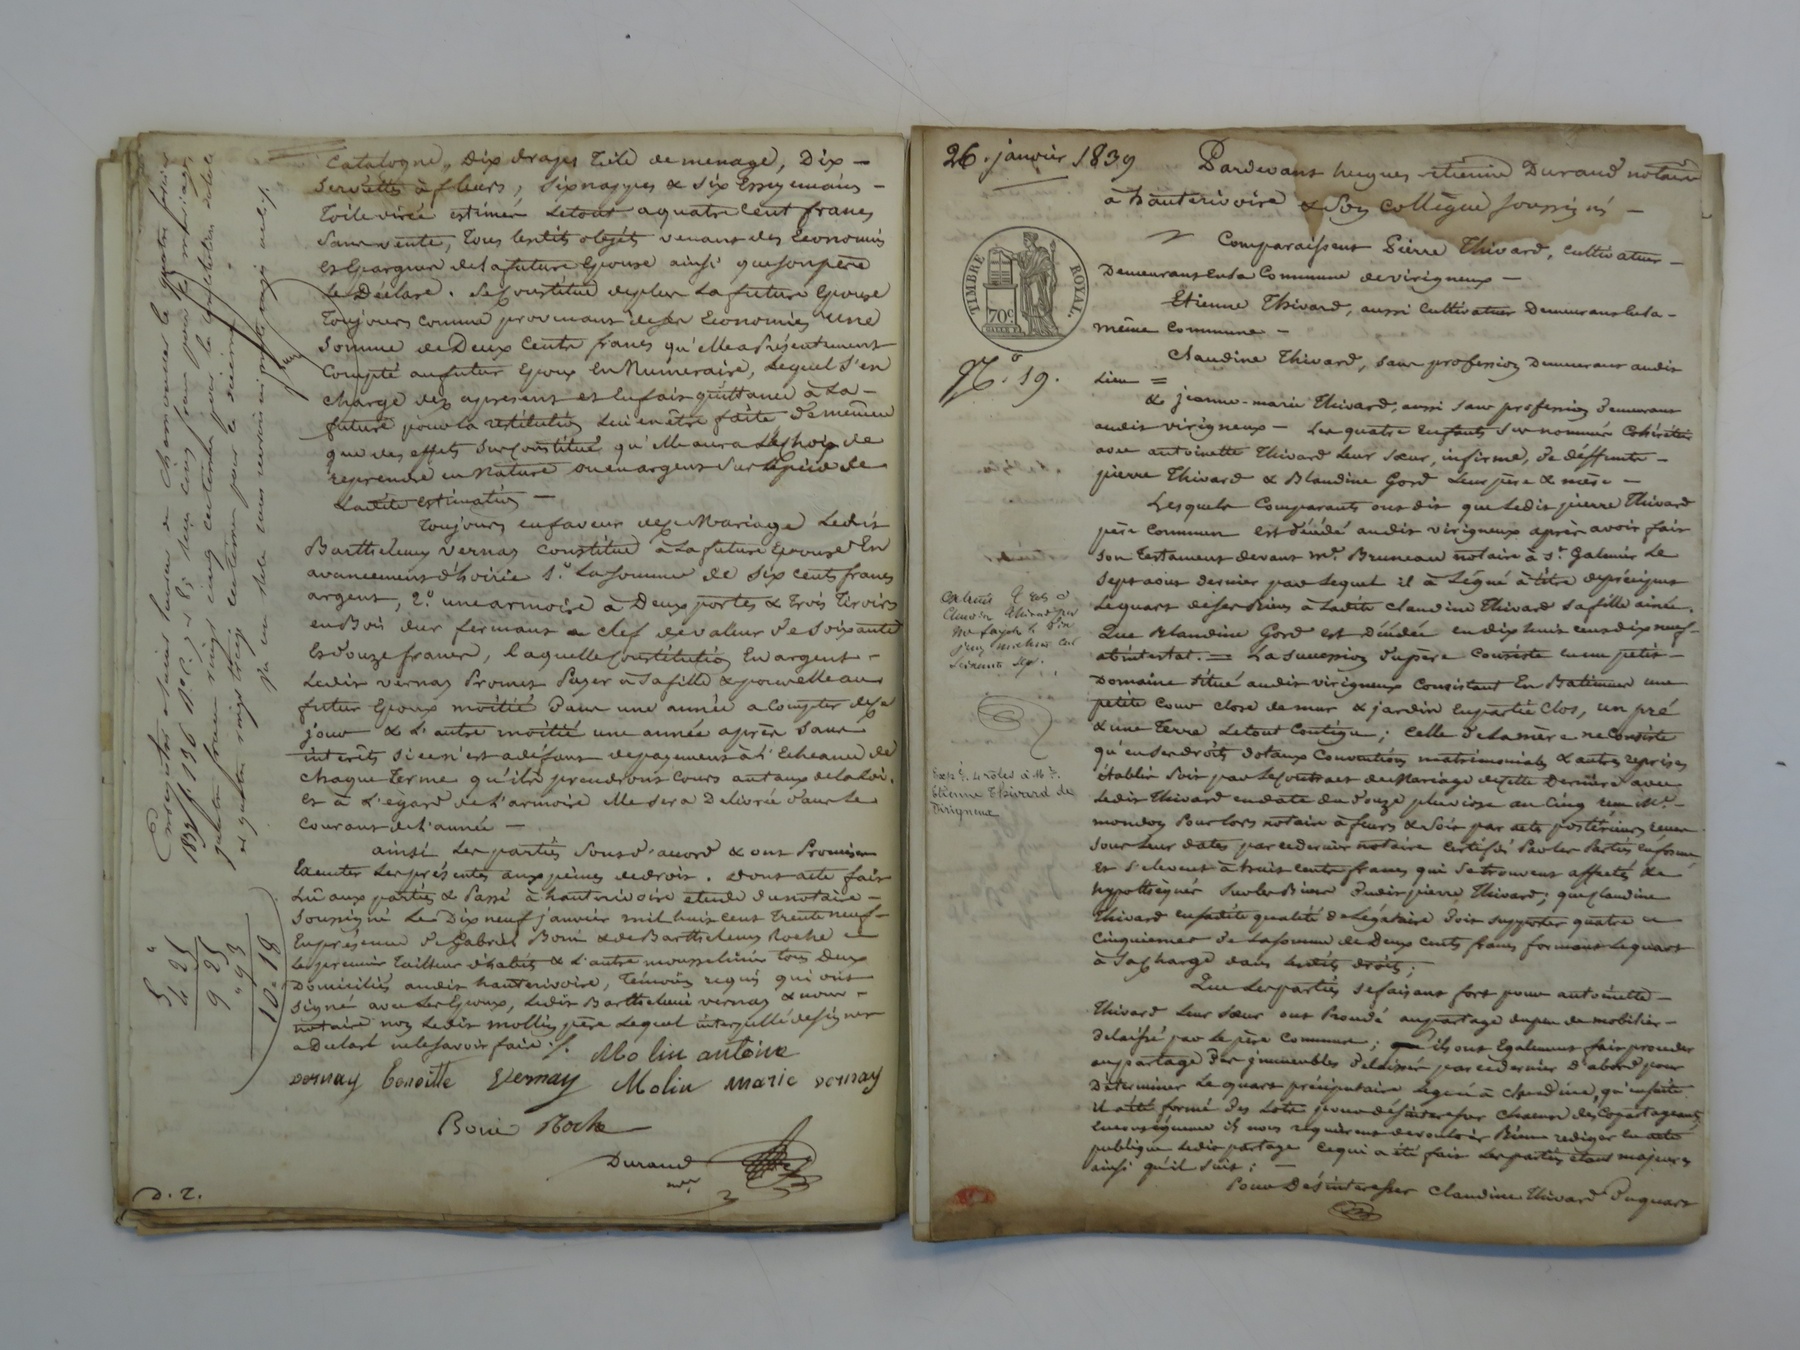 Catalogne, Dix draps toile de menage, Dix
serviettes à fleurs, six nappes & six Essuyemains
toile virée estimés Le tout a quatre cent francs
sans vente, tous lesdits objets venant des Economies
et Epargnes de la future Epouse ainsi que son père
Le Déclare. Se Constitue de plus La future Epouse
toujours comme provenant de ses Economies une
somme de Deux Cents francs qu'elle a Présentement
Compté au futur Epoux En Numéraire, Lequel s'en
charge dès apresent et lui fait quittance à La
future pour la restitution lui en être faite de même
que des effets sus constitués qu'elle aura Le choix de
reprendre en Nature ou en argent sur le pied de
Ladite estimation —
Toujours en faveur de ce Mariage Ledit
Barthelemy Vernay constitue à La future Epouse En
avancement d'hoirie 1.º La somme de six cents francs
argent, 2.º une armoire à Deux portes & trois tiroirs
en Bois dur fermant a clef de valeur de soixante
et douze francs, laquelle Constitution En argent
Ledit Vernay Promet Payer à sa fille & pour elle au
futur Epoux moitié Dans une année a Compter de ce
jour & L'autre moitié une année après sans
intérêts si ce n'est a défaut de payement à L'Echeance de
chaque terme qu'ils prendront Cours au taux de la Loi.
Et à L'égard de L'armoire Elle sera Delivrée dans Le
Courant de L'année —
ainsi Les parties sont d'accord & ont Promis
Executer Les présentes aux peines de droit. Dont acte fait
Lû aux parties & Passé à hauterivoire étude du notaire
soussigné Le Dix neuf janvier mil huit cent trente neuf
En présence de Gabriel Boni & de Barthelemy Roche
Le premier tailleur d'habits & L'autre mousselinier tous Deux
Domiciliés audit hauterivoire, témoins requis qui ont
signé avec Les Epoux, Ledit Barthelemi Vernay & nous
notaire non Ledit Mollin père Lequel interpellé de signer
a Déclaré ne le savoir faire ./.
Molin antoine
vernay benoitte Vernay Molin marie vernay
Boni Roche
Durand
nre
D. 2.
5 "
4 25
9 25
" 93
10 = 18
26. janvier 1839
Pardevant hugues-etienne Durand notaire
à hauterivoire & Son Collègue soussignés —
Comparaissent Pierre Thivard, cultivateur
Demeurant En La Commune de virigneux —
Etienne Thivard, aussi Cultivateur Demeurant En La
même Commune —
TIMBRE ROYAL.
70 c
Nº. 19.
Claudine Thivard, sans profession Demeurant audit
Lieu =
& jeanne-marie Thivard, aussi sans profession demeurant
audit virigneux — Les quatre Enfants sus nommés Cohéritiers
avec antoinette Thivard Leur sœur, infirme, de deffunts
pierre Thivard & Blandine Gord Leur père & mère —
Lesquels Comparants ont dit que Ledit pierre Thivard
père Commun est décédé audit virigneux après avoir fait
son testament devant Me. Bruneau notaire à St. Galmier Le
sept aout dernier par Lequel il à Légué à titre de préciput
Le quart de ses Biens à Ladite Claudine Thivard sa fille ainée.
Que Blandine Gord est Décédée en dix huit cent dix neuf
abintestat. = La succession du père Consiste en un petit
Domaine situé audit virigneux Consistant En Batiments une
petite Cour close de mur & jardin En partie Clos, un pré
& une Terre Le tout Contigu; Celle de La mère ne Consiste
qu'en ses droits dotaux Conventions matrimoniales & autres reprises
établis soit par Le Contrat de Mariage de cette Dernière avec
Ledit Thivard en date du douze pluviose an Cinq reçu Me.
mondon Pour lors notaire à feurs & soit par acte postérieurs reçus
sous Leur dates par ce dernier notaire Certifiés Par Les Parties en forme
et s'elevent à huit cents francs qui se trouvent affectés &
hypothéqués sur les Biens dudit pierre Thivard; que Claudine
Thivard en sadite qualité de Légataire doit supporter quatre
Cinquiemes de La somme de Deux Cents francs formant Le quart
à sa Charge dans Lesdits droits;
Que Les parties se faisant fort pour antoinette
Thivard Leur sœur ont Procédé au partage du peu de mobilier
délaissé par Le père Commun; qu'ils ont Egalement fait proceder
au partage des immeubles délaissés par ce dernier d'abord pour
Déterminer Le quart préciputaire Légué à Claudine, qu'ensuite
il a été formé des Lots pour désinteresser chacun des Copartageants,
En conséquence ils nous requierent de vouloir Bien rediger En acte
publique Ledit partage Ce qui a été fait Les parties étant majeures
ainsi qu'il suit: —
Pour Désinteresser Claudine Thivard du quart
Expé. 4 rôles à Me.
Etienne Thivard de
Virigneux